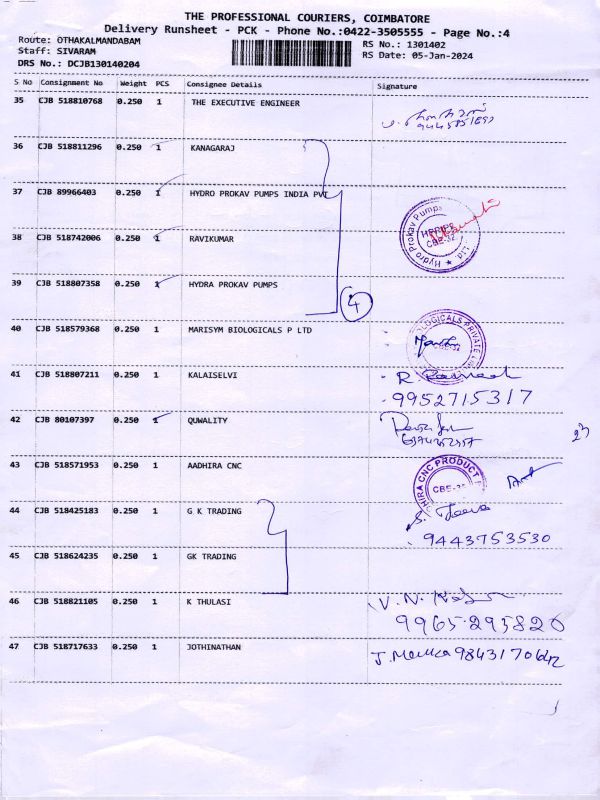 THE PROFESSIONAL COURIERS, COIMBATORE
Delivery Runsheet - PCK - Phone No.:0422-3505555 - Page No.:4
Route: OTHAKALMANDABAM
RS No.: 1301402
Staff: SIVARAM
RS Date: 05-Jan-2024
DRS No.: DCJB130140204
S No Consignment No Weight PCS Consignee Details Signature
35 CJB 518810768 0.250 1 THE EXECUTIVE ENGINEER
36 CJB 518811296 0.250 1 KANAGARAJ
37 CJB 89966403 0.250 1 HYDRO PROKAV PUMPS INDIA PVT
Hydro Prokav Pumps Ltd. CBE-32
38 CJB 518742006 0.250 1 RAVIKUMAR
39 CJB 518807358 0.250 1 HYDRA PROKAV PUMPS
4
40 CJB 518579368 0.250 1 MARISYM BIOLOGICALS P LTD
41 CJB 518807211 0.250 1 KALAISELVI
9952715317
42 CJB 80107397 0.250 1 QUWALITY
23
43 CJB 518571953 0.250 1 AADHIRA CNC
DHIRA CNC PRODUCT CBE-32
44 CJB 518425183 0.250 1 G K TRADING
9443753530
45 CJB 518624235 0.250 1 GK TRADING
46 CJB 518821105 0.250 1 K THULASI V.N.
9965-295820
47 CJB 518717633 0.250 1 JOTHINATHAN J. 9843170642